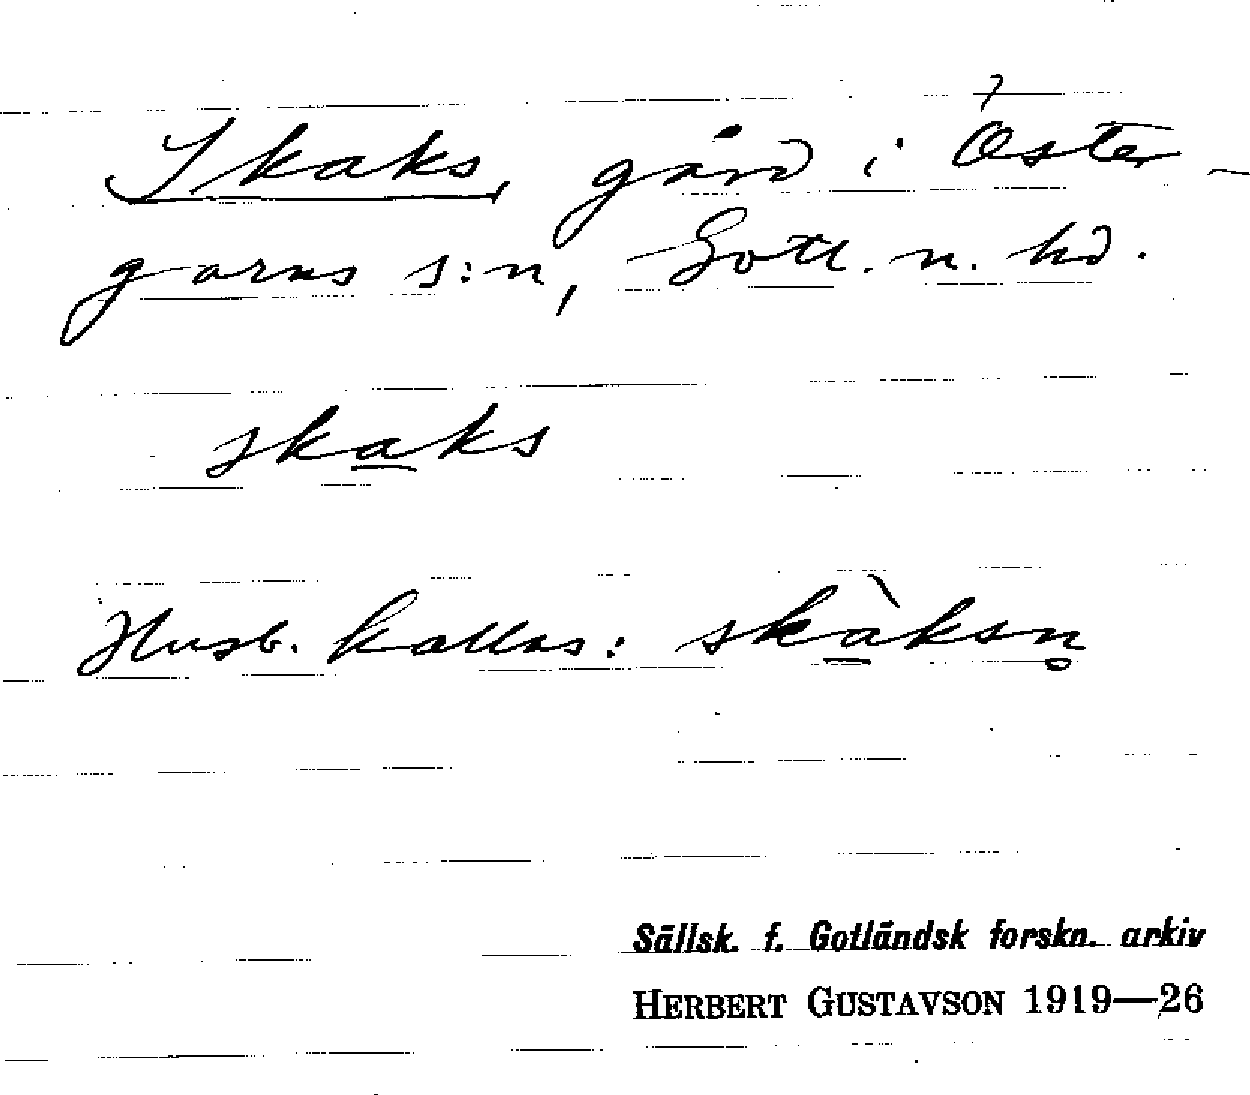 Skaks, gård i Öster-
garns s:n, Gotl. n. hd.
ska̲ks
Husb. kallas: skà̲ksn̥
Sällsk. f. Gotländsk forskn. arkiv
HERBERT GUSTAVSON 1919—26